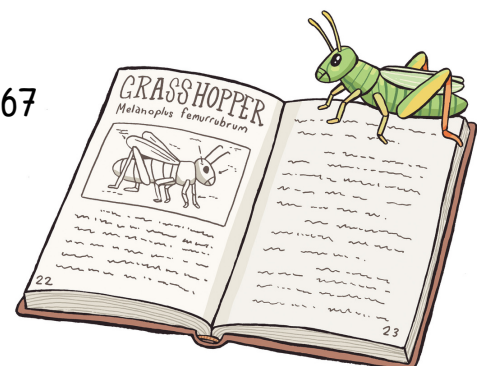 67
GRASSHOPPER
Melanoplus femurrubrum
22
23